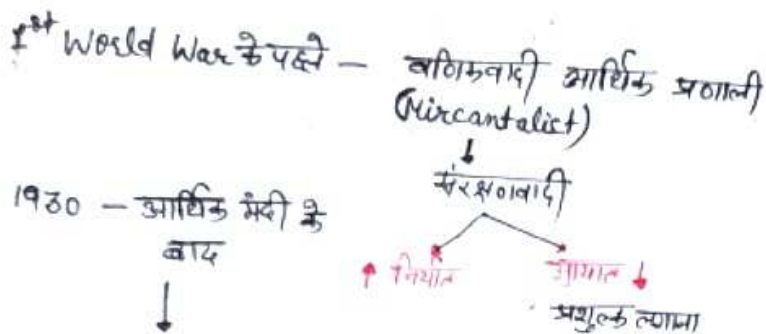 1st World War के पहले – वणिकवादी आर्थिक प्रणाली
(Mircantalist)
↓
संरक्षणवादी
↑ निर्यात
आयात ↓
प्रशुल्क लगाना
1930 – आर्थिक मंदी के
बाद
↓